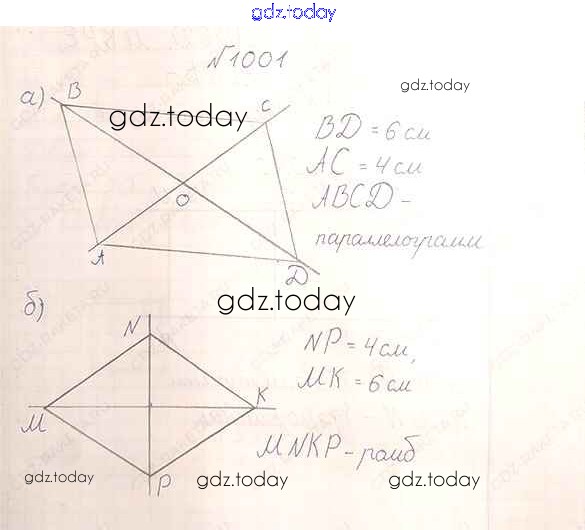 gdz.today
№1001
gdz.today
а) B
C
gdz.today
BD = 6 см
AC = 4 см
ABCD –
параллелограмм
O
A
D
gdz.today
б)
N
NP = 4 см,
MK = 6 см
K
M
MNKP – ромб
P
gdz.today
gdz.today
gdz.today